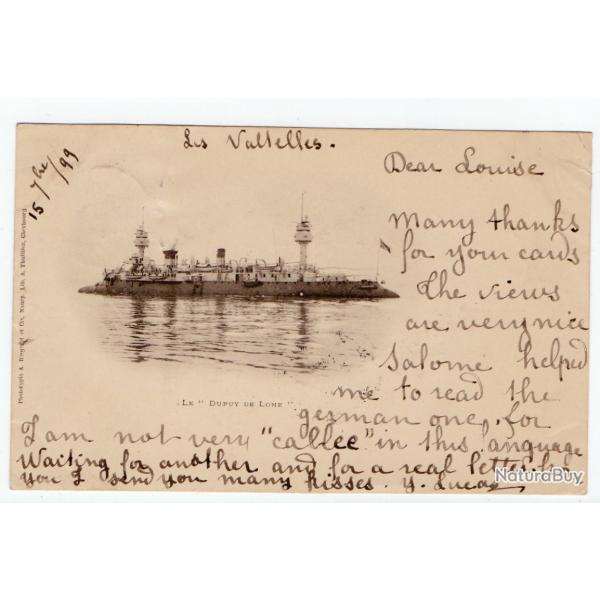 Les Valtelles.
15 7bre/99
Dear Louise
Many thanks
for your cards
The views
are very nice
Salome helped
me to read the
german one, for
I am not very "callée" in this language
Waiting for another and for a real letter
you I send you many kisses. Y. Lucas
LE " DUPUY DE LOME "
Phototypie A. Bergeret et Cie, Nancy. Lib. A. Cherbourg.
NaturaBuy